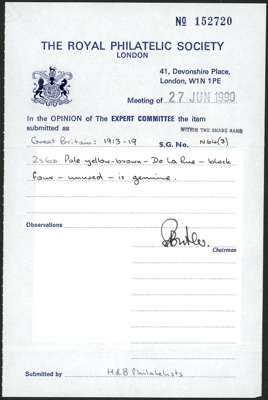 Nº 152720
THE ROYAL PHILATELIC SOCIETY
LONDON
41, Devonshire Place,
London, W1N 1PE
Meeting of 27 JUN 1990
In the OPINION of The EXPERT COMMITTEE the item
submitted as WITHIN THE SHARE RANGE
Great Britain: 1913-19 S.G. No. N64(3)
2s6d Pale yellow-brown - De La Rue - block
four - unused - is genuine.
Observations
Chairman
Submitted by H&B Philatelists